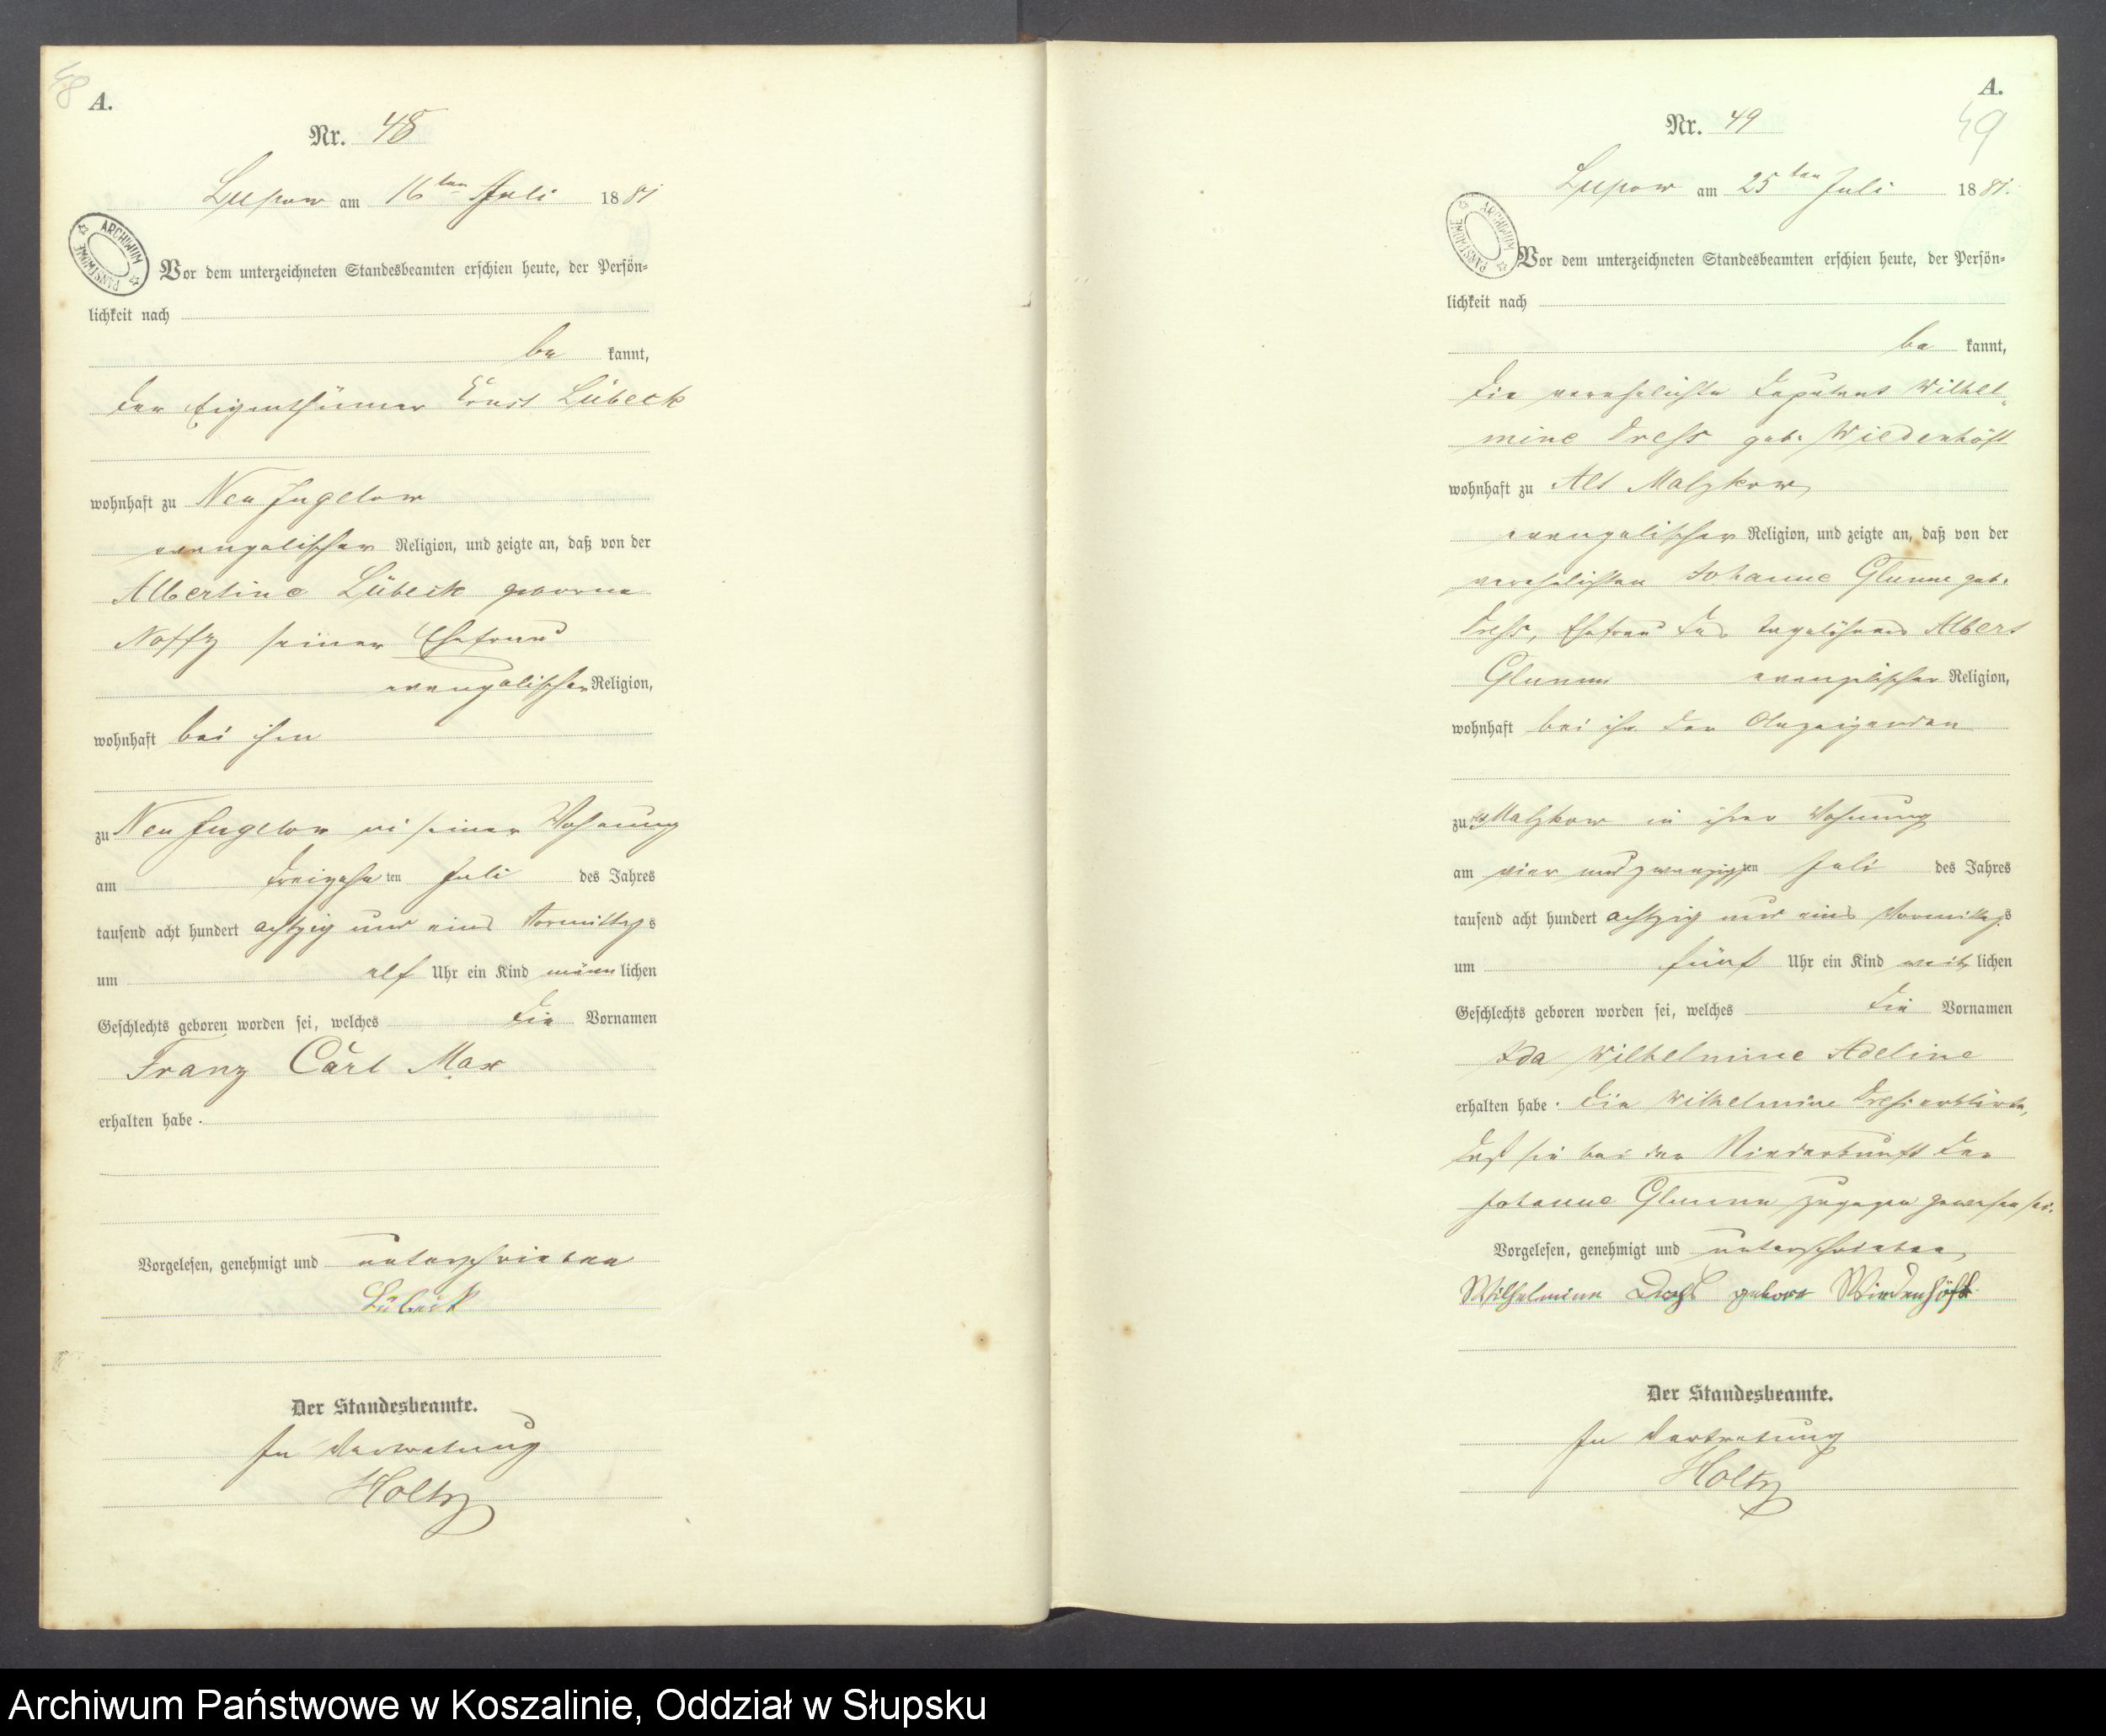 48
A.
Nr. 48
Lupow am 16ten Juli 1881
ARCHIWUM PAŃSTWOWE
Vor dem unterzeichneten Standesbeamten erschien heute, der Persön=
lichkeit nach
be kannt,
der Eigenthümer Ernst Lübeck
wohnhaft zu Neu Jugelow
evangelischer Religion, und zeigte an, daß von der
Albertine Lübeck geborne
Noffz seiner Ehefrau
evangelischer Religion,
wohnhaft bei ihm
zu Neu Jugelow in seiner Wohnung
am dreizehn ten Juli des Jahres
tausend acht hundert achtzig und eins Vormittags
um elf Uhr ein Kind männlichen
Geschlechts geboren worden sei, welches die Vornamen
Franz Carl Max
erhalten habe.
Vorgelesen, genehmigt und unterschrieben
Lübeck
Der Standesbeamte.
In Vertretung
Holtz
A.
49
Nr. 49
Lupow am 25ten Juli 1881.
ARCHIWUM PAŃSTWOWE
Vor dem unterzeichneten Standesbeamten erschien heute, der Persön=
lichkeit nach
be kannt,
die verehelichte Deputant Wilhel=
mine Dreß geb. Wiedenhöft
wohnhaft zu Alt Malzkow,
evangelischer Religion, und zeigte an, daß von der
verehelichten Johanne Glumm geb.
Dreß, Ehefrau des Tagelöhners Albert
Glumm evangelischer Religion,
wohnhaft bei ihr der Anzeigenden
zu Malzkow in ihrer Wohnung
am vier und zwanzigsten Juli des Jahres
tausend acht hundert achtzig und eins Vormittags
um fünf Uhr ein Kind weiblichen
Geschlechts geboren worden sei, welches die Vornamen
Ida Wilhelmine Adeline
erhalten habe. Die Wilhelmine Dreß erklärte,
daß sie bei der Niederkunft der
Johanne Glumm zugegen gewesen sei.
Vorgelesen, genehmigt und unterschrieben,
Wilhelmine Dreß geborne Wiedenhöft
Der Standesbeamte.
In Vertretung
Holtz
Archiwum Państwowe w Koszalinie, Oddział w Słupsku